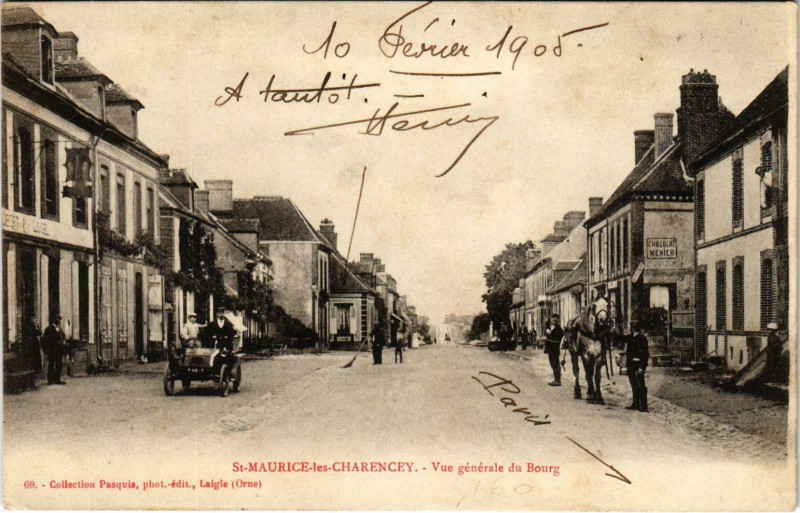 10 Février 1905.
A tantôt.
Henri
CHOCOLAT
MENIER
Paris
St-MAURICE-les-CHARENCEY. - Vue générale du Bourg
69. - Collection Pasquis, phot.-édit., Laigle (Orne)